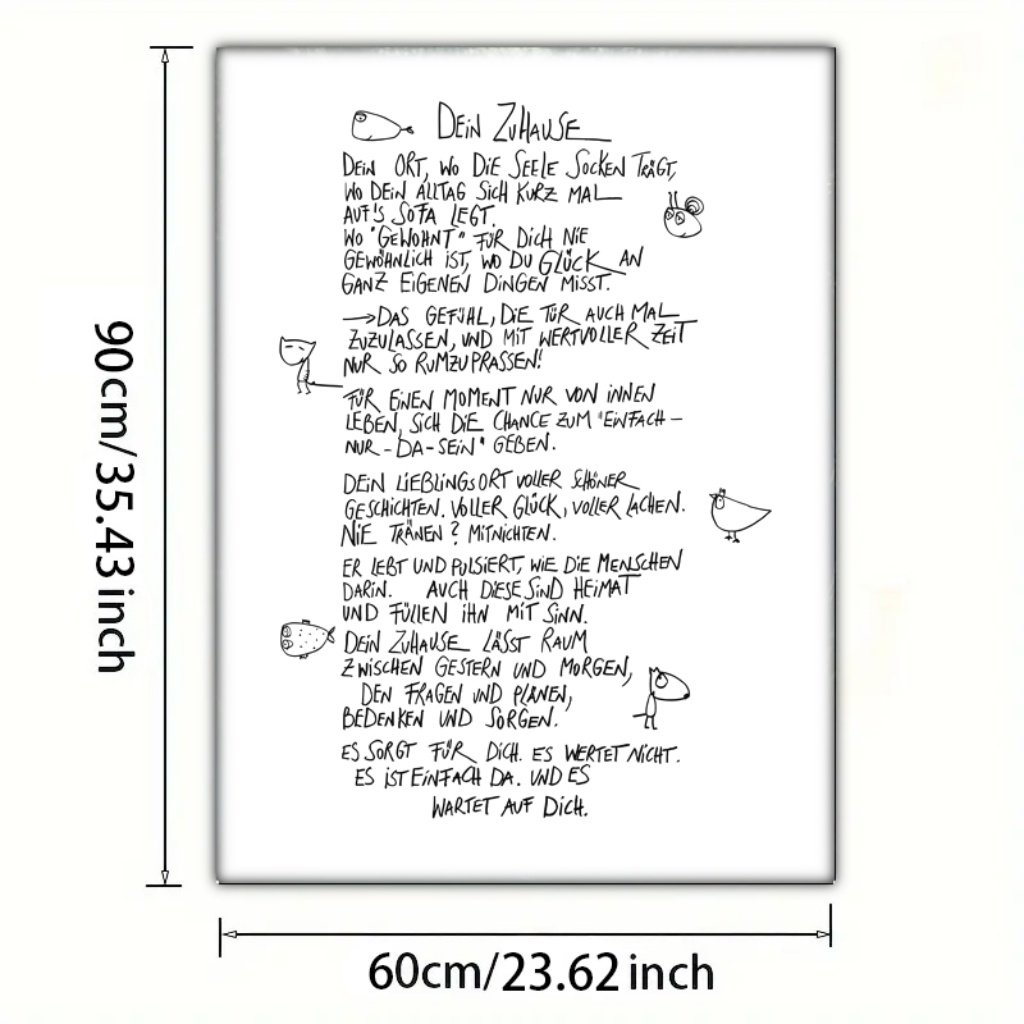 DEIN ZUHAUSE
DEIN ORT, WO DIE SEELE SOCKEN TRÄGT,
WO DEIN ALLTAG SICH KURZ MAL
AUF'S SOFA LEGT.
WO "GEWOHNT" FÜR DICH NIE
GEWÖHNLICH IST, WO DU GLÜCK AN
GANZ EIGENEN DINGEN MISST.
→DAS GEFÜHL, DIE TÜR AUCH MAL
ZUZULASSEN, UND MIT WERTVOLLER ZEIT
NUR SO RUMZUPRASSEN!
FÜR EINEN MOMENT NUR VON INNEN
LEBEN, SICH DIE CHANCE ZUM "EINFACH-
NUR-DA-SEIN" GEBEN.
DEIN LIEBLINGSORT VOLLER SCHÖNER
GESCHICHTEN. VOLLER GLÜCK, VOLLER LACHEN.
NIE TRÄNEN? MITNICHTEN.
ER LEBT UND PULSIERT, WIE DIE MENSCHEN
DARIN. AUCH DIESE SIND HEIMAT
UND FÜLLEN IHN MIT SINN.
DEIN ZUHAUSE LÄSST RAUM
ZWISCHEN GESTERN UND MORGEN,
DEN FRAGEN UND PLÄNEN,
BEDENKEN UND SORGEN.
ES SORGT FÜR DICH. ES WERTET NICHT.
ES IST EINFACH DA. UND ES
WARTET AUF DICH.
90cm/35.43inch
60cm/23.62inch